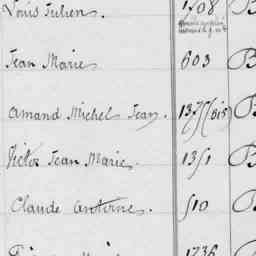 Louis Julien. 1708 B
Jean Marie 603 B
Amand Michel Jean. 1375 (bis) B
Victor Jean Marie. 1351 B
Claude Antoine. 510 B
1736